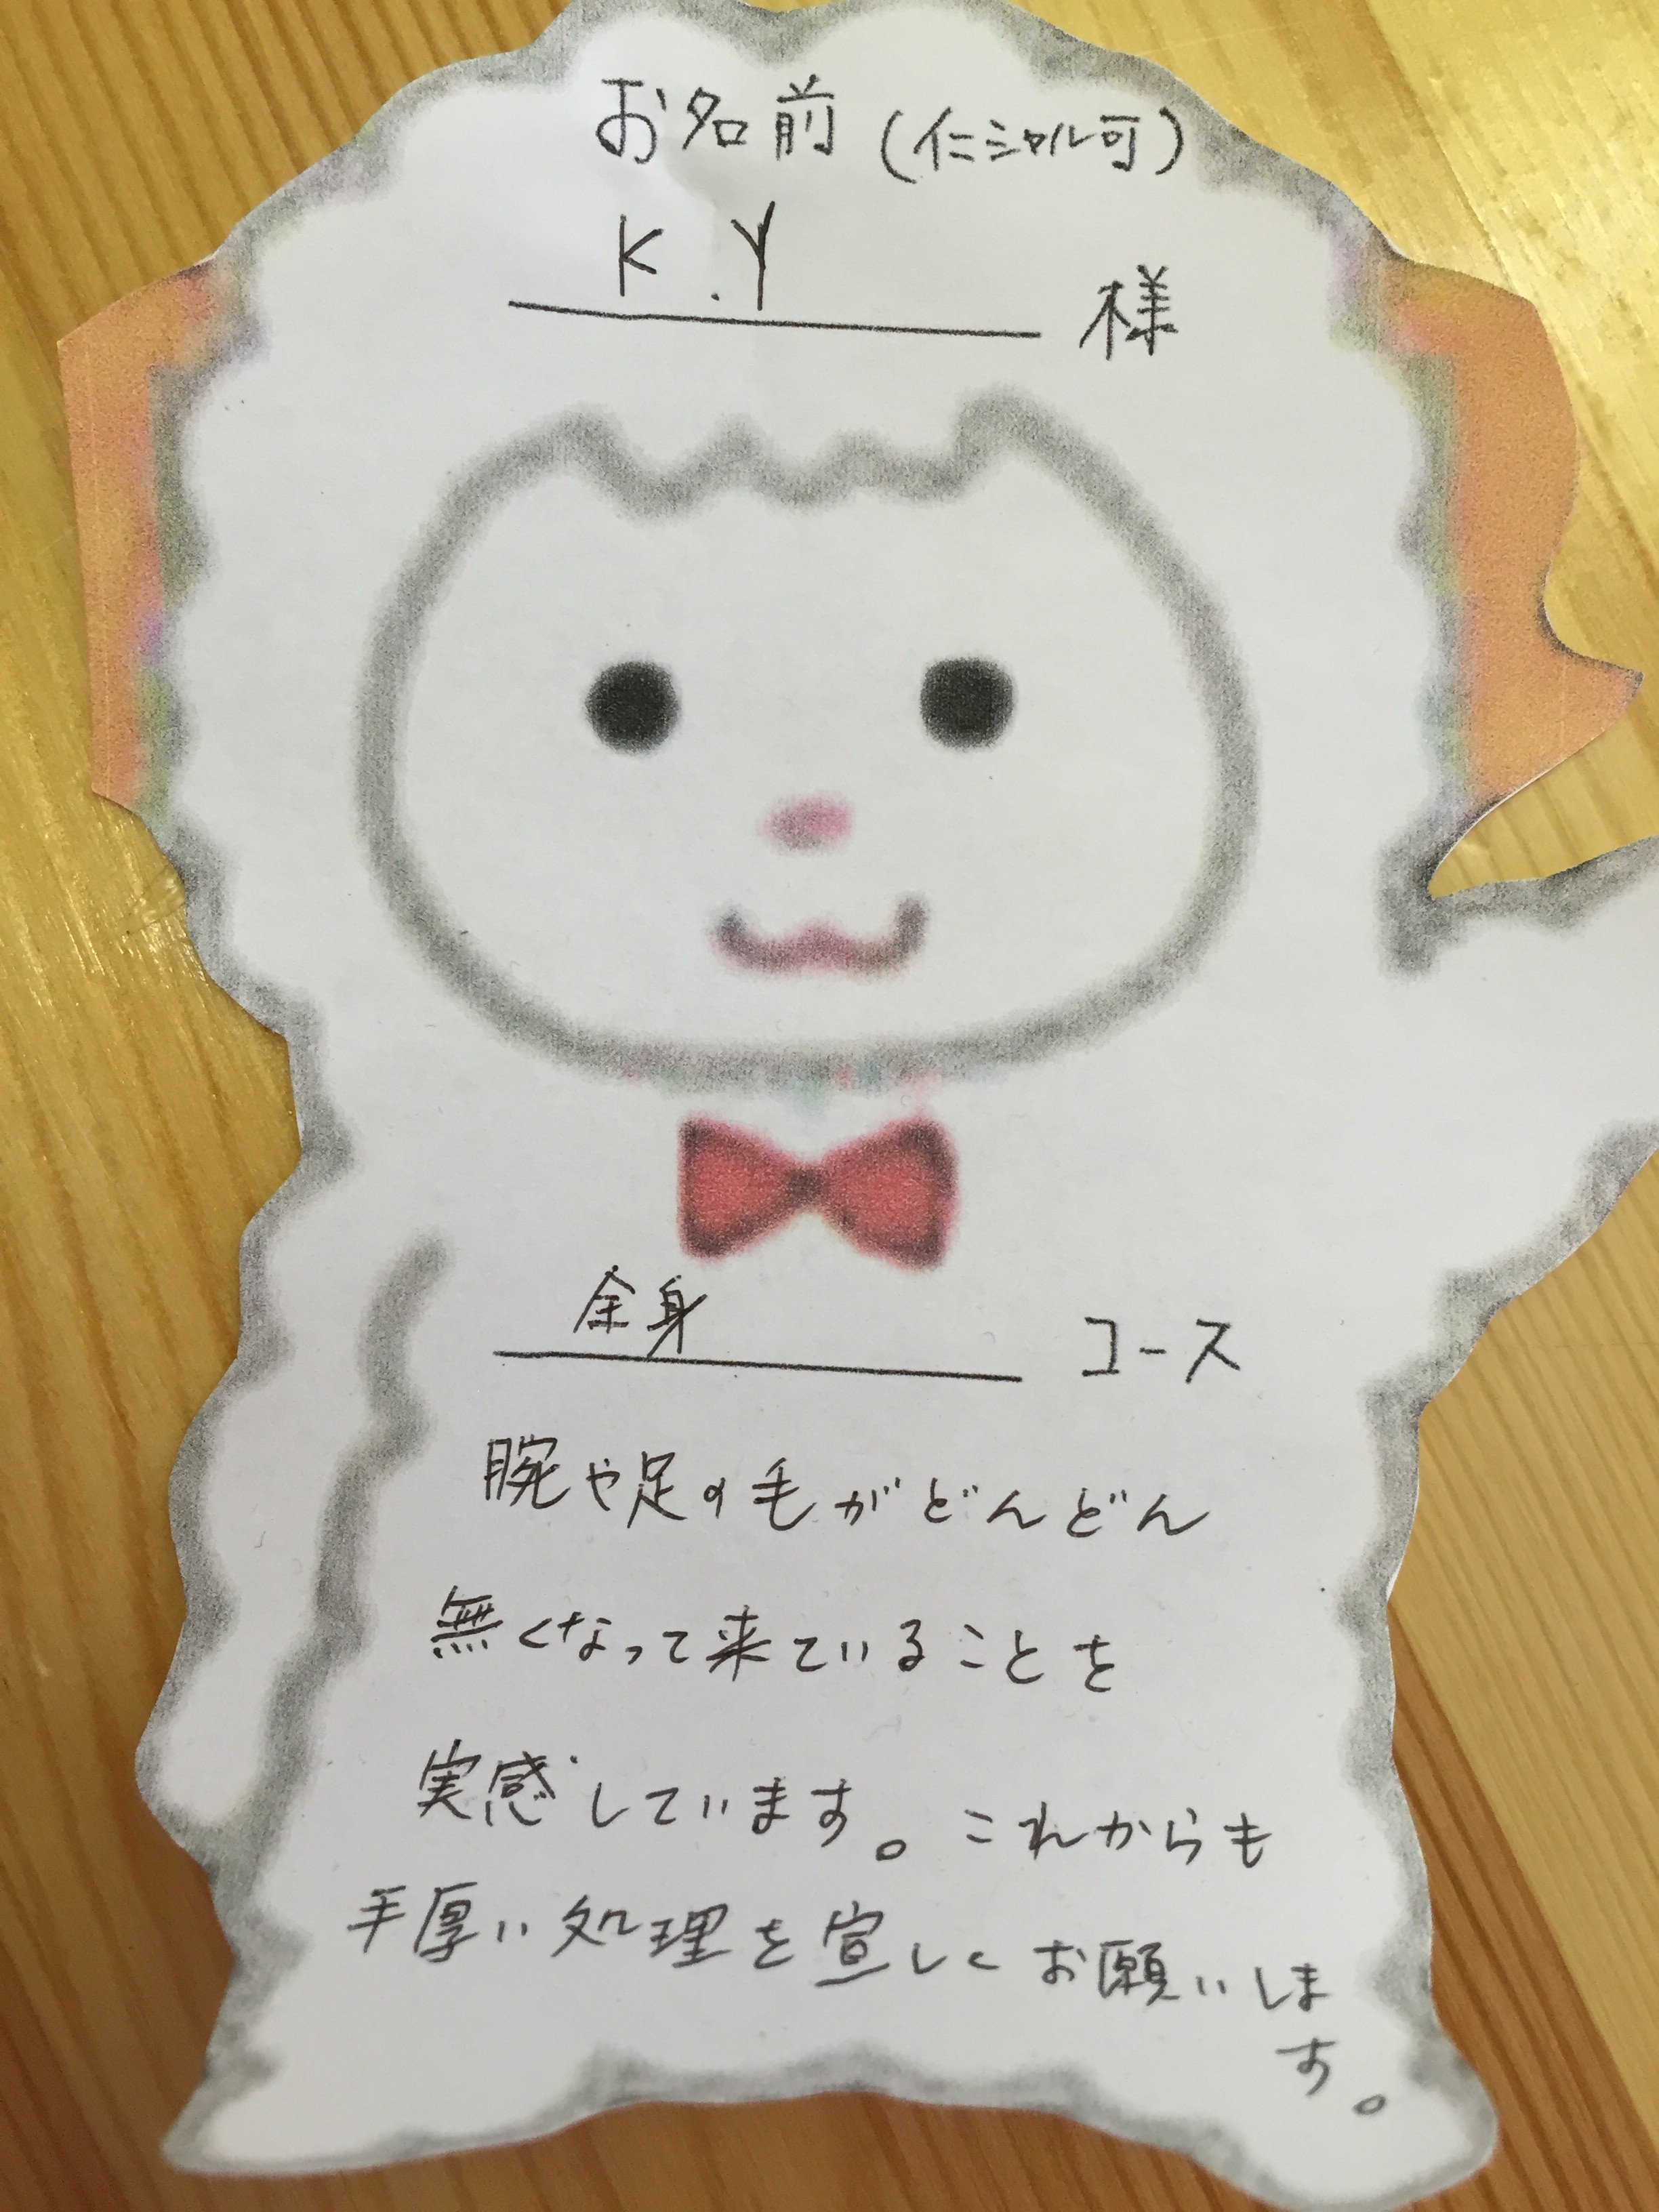 お名前(イニシャル可)
K.Y 様
全身 コース
腕や足の毛がどんどん
無くなって来ていることを
実感しています。これからも
手厚い処理を宜しくお願いしま
す。